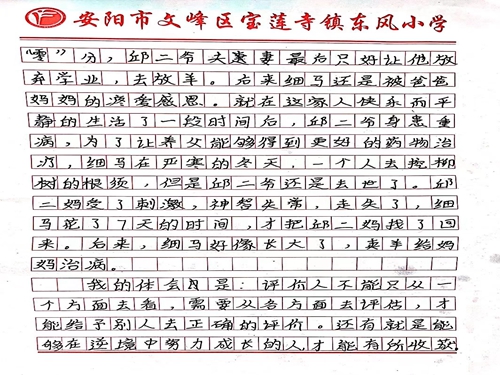 安阳市文峰区宝莲寺镇东风小学
"零"分，邱二爷夫妻最后只好让他放
弃学业，去放羊。后来细马还是被爸爸
妈妈的疼爱感恩。就在这家人快乐而平
静的生活了一段时间后，邱二爷身患重
病，为了让养父能够得到更好的药物治
疗，细马在严寒的冬天，一个人去挖柳
树的根须，但是邱二爷还是去世了。邱
二妈受了刺激，神智失常，走失了，细
马花了7天的时间，才把邱二妈找了回
来。后来，细马好像长大了，卖羊给妈
妈治病。
我的体会是：评价人不能只从一
个方面去看，需要从各方面去评估，才
能给予别人去正确的评价。还有就是能
够在逆境中努力成长的人，才能有所收获